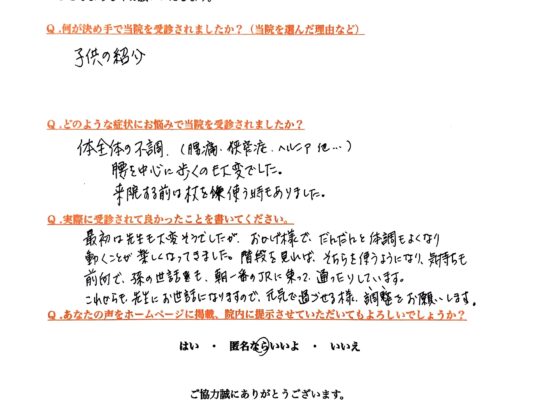 Q.何が決め手で当院を受診されましたか？（当院を選んだ理由など）
子供の紹介
Q.どのような症状にお悩みで当院を受診されましたか？
体全体の不調.（腰痛・狭窄症・ヘルニア他…）
腰を中心に歩くのも大変でした。
来院する前は杖を使う時もありました。
Q.実際に受診されて良かったことを書いてください。
最初は先生も大変そうでしたが、おかげ様で、だんだんと体調もよくなり
動くことが楽しくなってきました。階段を見れば、そちらを使うようになり、気持ちも
前向で、孫の世話も、朝一番のJRに乗って通ったりしています。
これからも先生にお世話になりますので、元気で過ごせる様、調整をお願いします。
Q.あなたの声をホームページに掲載、院内に提示させていただいてもよろしいでしょうか？
はい ・ 匿名ならいいよ ・ いいえ
ご協力誠にありがとうございます。